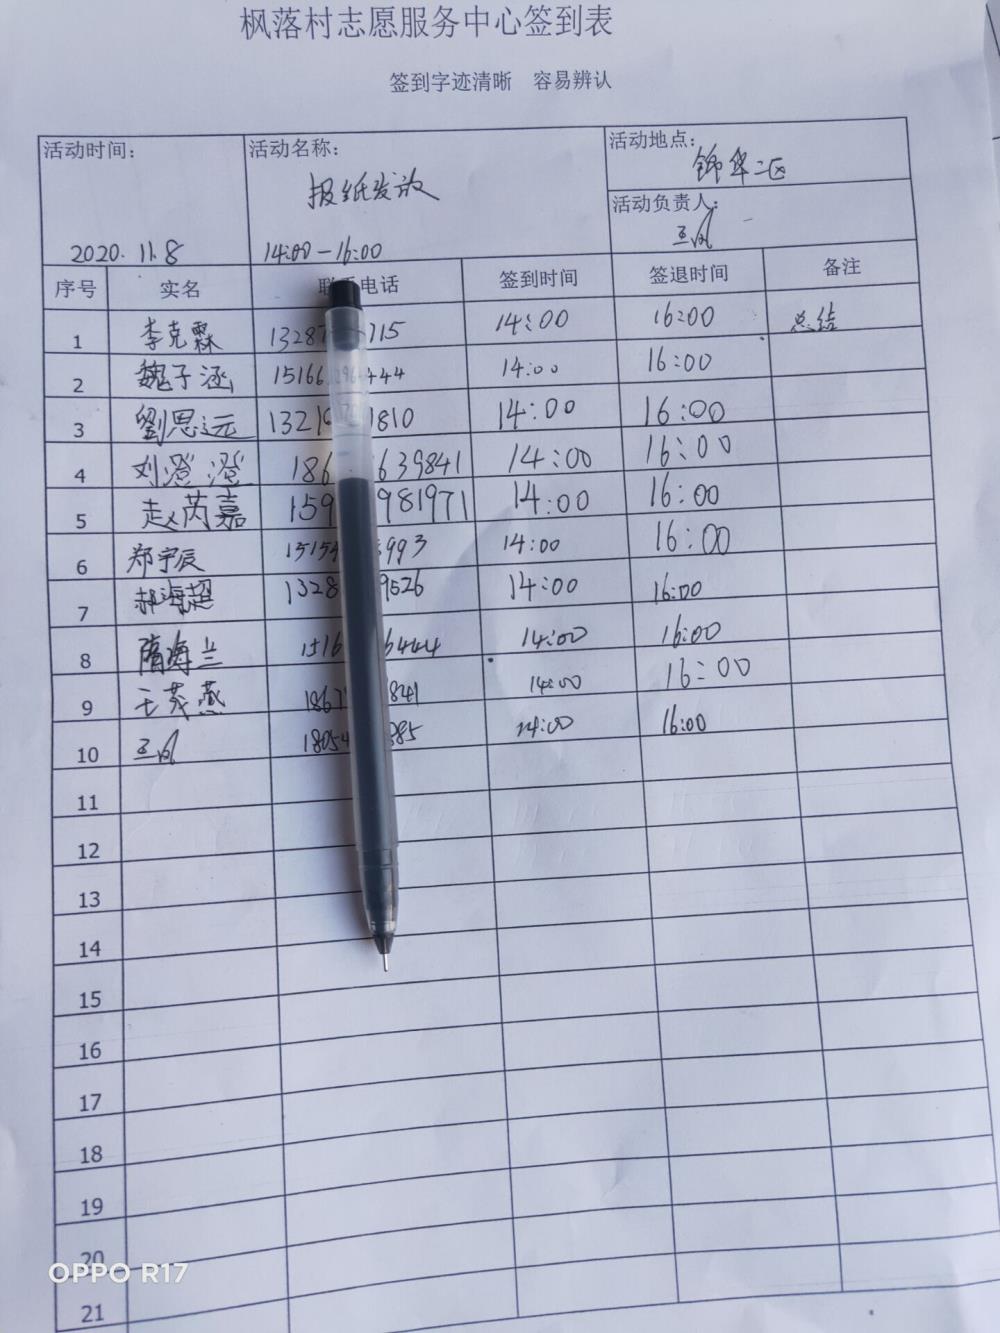 枫落村志愿服务中心签到表
签到字迹清晰 容易辨认
活动时间: 活动名称: 活动地点:
报纸发放 锦华二区
活动负责人:
王凤
2020.11.8 14:00-16:00
序号 实名 电话 签到时间 签退时间 备注
1 李克霖 1328 715 14:00 16:00 总结
2 魏子涵 15166 444 14:00 16:00
3 劉思远 1321 1810 14:00 16:00
4 刘澄澄 186 639841 14:00 16:00
5 赵芮嘉 159 981971 14:00 16:00
6 郑宇辰 15154 993 14:00 16:00
7 郝海超 1328 9526 14:00 16:00
8 隋海兰 1516 6444 14:00 16:00
9 王茂燕 1867 841 14:00 16:00
10 王凤 18054 885 14:00 16:00
11
12
13
14
15
16
17
18
19
20
21
OPPO R17